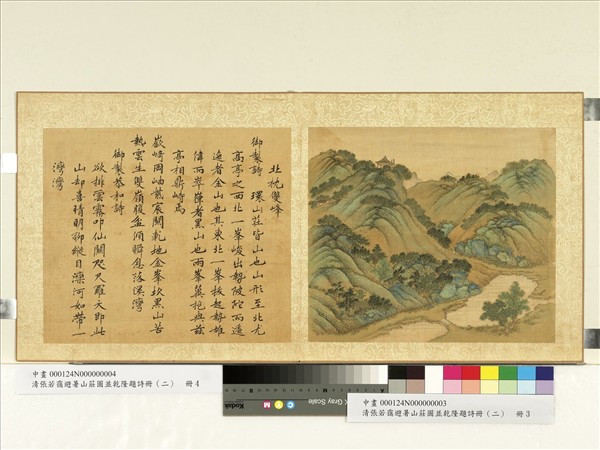 北枕雙峰
御製詩　環山莊皆山也山形至北尤
高亭之西北一峯峻出勢陂陀而逶
迤者金山也其東北一峯拔起勢雄
偉而崒嵂者黑山也兩峯翼抱與茲
亭相鼎峙焉
嶔崎岡岫䕫宸關乾地金峯坎黑山苦
熱雲生雙嶺腹盆傾瞬息落溪灣
御製恭和詩
欲排雲霧叩仙關咫尺羅天即此
山却喜晴明御縱目灤河如帶一
灣灣
中畫 000124N000000004
清張若靄避暑山莊圖並乾隆題詩冊（二）　冊 4
Kodak
Gray Scale
C
Y
M
中畫 000124N000000003
清張若靄避暑山莊圖並乾隆題詩冊（二）　冊 3